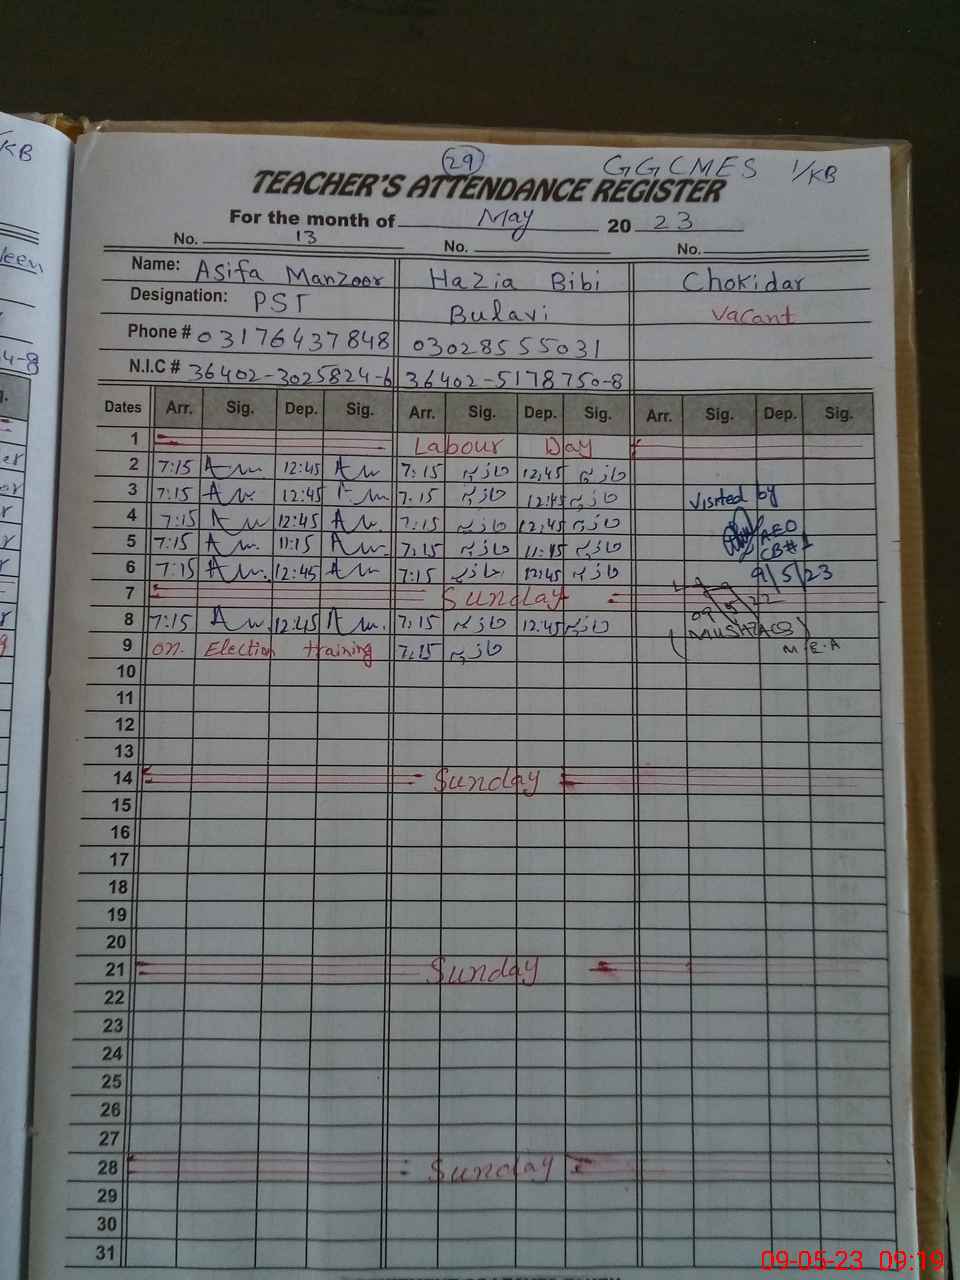 29 GGCMES 1/KB
TEACHER'S ATTENDANCE REGISTER
For the month of May 2023
No. 13 No. No.
Name: Asifa Manzoor Hazia Bibi Chokidar
Designation: PST Bulavi Vacant
Phone # 03176437848 03028555031
N.I.C # 36402-3025824-6 36402-5178750-8
Dates Arr. Sig. Dep. Sig. Arr. Sig. Dep. Sig. Arr. Sig. Dep. Sig.
1 Labour Day
2 7:15 12:45 7:15 12,45
3 7:15 12:45 7.15 12:45 Visited by
4 7:15 12:45 7:15 12,45 AEO
5 7:15 11:15 7,15 11:15 CB#1
6 7:15 12:45 7:15 12,45 9/5/23
7 Sunday
8 7:15 12:45 7:15 12.45
9 on. Election training 7,15 M.E.A
10
11
12
13
14 Sunday
15
16
17
18
19
20
21 Sunday
22
23
24
25
26
27
28 Sunday
29
30
31
09-05-23 09:19